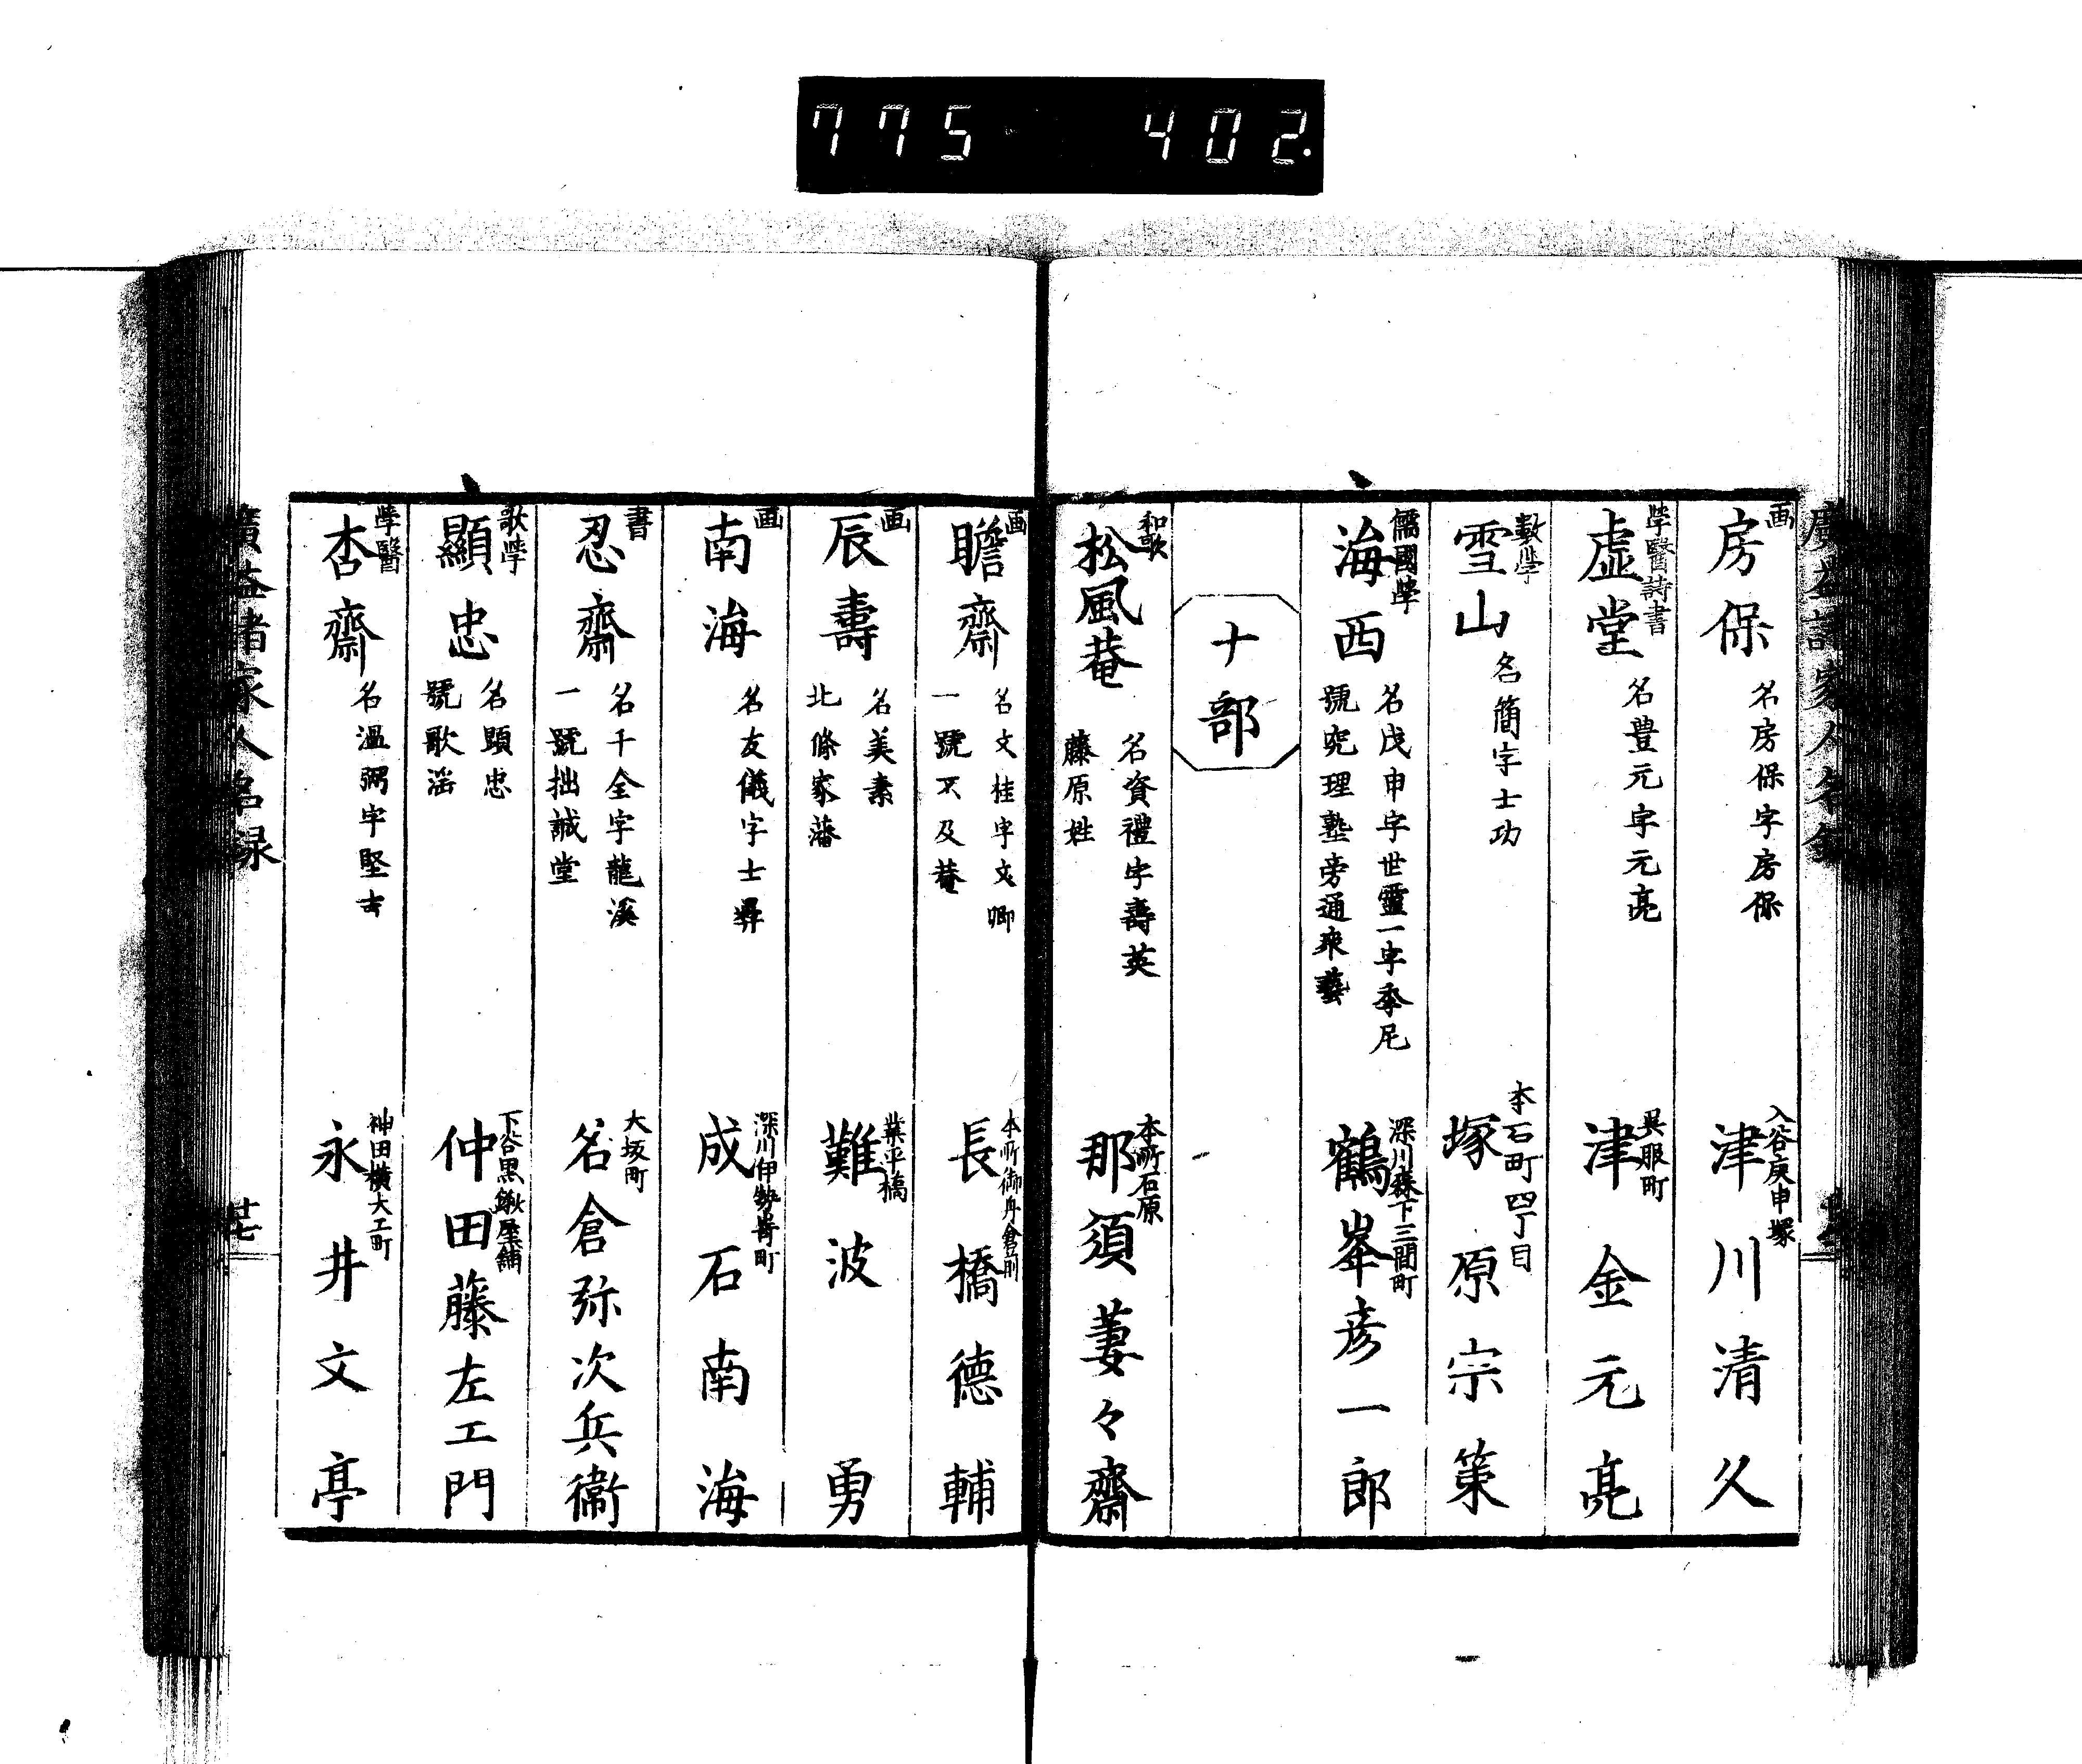 775 402.
画
房保
名房保字房保
入谷庚申塚
津川清久
学醫詩書
虚堂
名豊元字元亮
呉服町
津金元亮
数学
雪山
名簡字士功
本石町四丁目
塚原宗策
儒國学
海西
名戊申字世霊一字季尼
號究理塾旁通衆藝
深川森下三間町
鶴峯彦一郎
ナ部
和歌
松風菴
名資禮字壽英
藤原姓
本所石原
那須萋々齋
画
瞻齋
名文桂字文卿
一號不及菴
本所御舟倉前
長橋德輔
画
辰壽
名美素
北條家藩
業平橋
難波勇
画
南海
名友儀字士彝
深川伊勢嵜町
成石南海
書
忍齋
名千全字龍溪
一號拙誠堂
大坂町
名倉弥次兵衞
歌学
顯忠
名顕忠
號歌活
下谷黒鍬屋舗
仲田藤左エ門
学醫
杏齋
名温弼字堅吉
神田横大工町
永井文亭
廣益諸家人名録
廿七